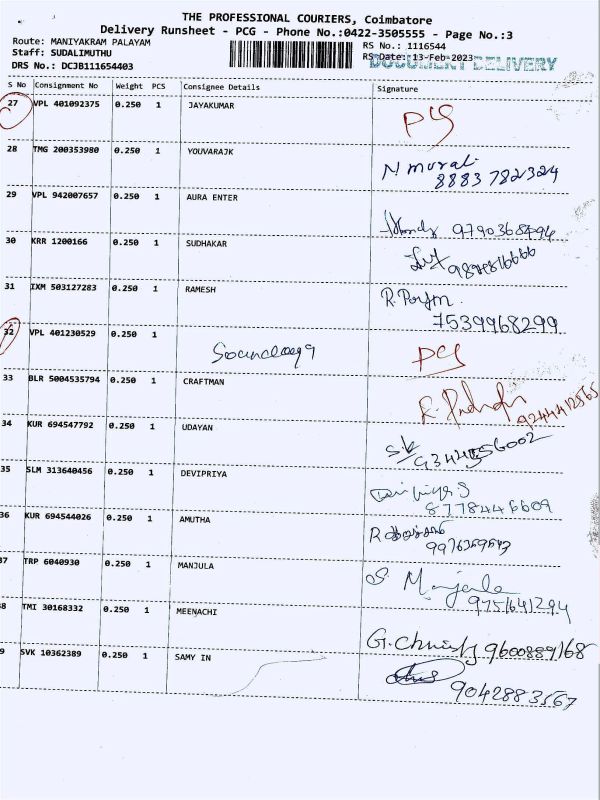 THE PROFESSIONAL COURIERS, Coimbatore
Delivery Runsheet - PCG - Phone No.:0422-3505555 - Page No.:3
Route: MANIYAKRAM PALAYAM
RS No.: 1116544
Staff: SUDALIMUTHU
RS Date: 13-Feb-2023
DOCUMENT DELIVERY
DRS No.: DCJB111654403
S No Consignment No Weight PCS Consignee Details Signature
27 VPL 401092375 0.250 1 JAYAKUMAR
28 TMG 200353980 0.250 1 YOUVARAJK
N mural
8883 782324
29 VPL 942007657 0.250 1 AURA ENTER
9790368494
30 KRR 1200166 0.250 1 SUDHAKAR
31 IXM 503127283 0.250 1 RAMESH
7539968299
32 VPL 401230529 0.250 1
33 BLR 5004535794 0.250 1 CRAFTMAN
9244412565
34 KUR 694547792 0.250 1 UDAYAN
35 SLM 313640456 0.250 1 DEVIPRIYA
8778446609
36 KUR 694544026 0.250 1 AMUTHA
37 TRP 6040930 0.250 1 MANJULA
S. Manjula
9751641294
38 TMI 30168332 0.250 1 MEENACHI
G. Christy 9600889168
39 SVK 10362389 0.250 1 SAMY IN
9042883567